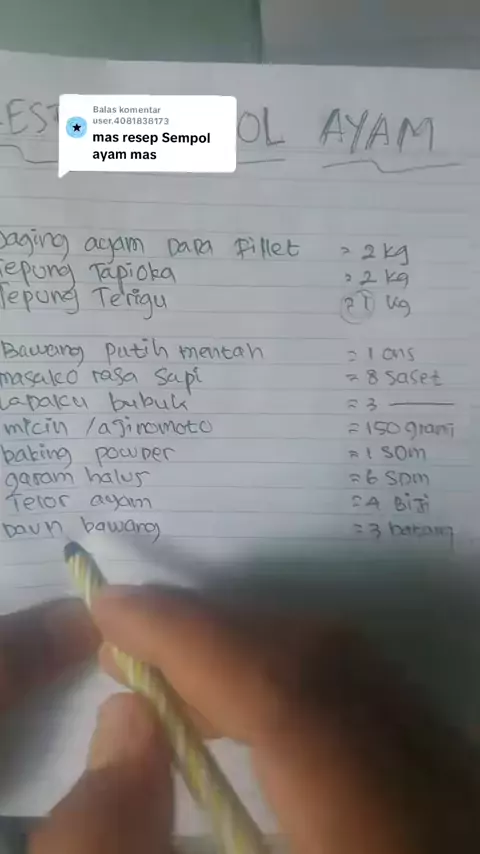 Balas komentar
user.4081838173
mas resep Sempol
ayam mas
OL AYAM
Daging ayam Dada Fillet = 2 kg
Tepung Tapioka = 2 kg
Tepung Terigu = 1 kg
Bawang putih mentah = 1 ons
masako rasa sapi = 8 saset
Ladaku bubuk = 3
micin / ajinomoto = 150 gram
baking powder = 1 SDM
garam halus = 6 SDM
Telor ayam = 4 Biji
Daun bawang = 3 batang